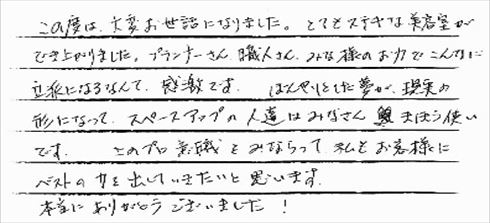 この度は、大変お世話になりました。とてもステキな美容室が
でき上がりました。プランナーさん、職人さん、みな様のお力でこんなに
立派になるなんて、感激です。 ぼんやりとした夢が、現実の
形になって、スペースアップの人達はみなさん まほう使い
です。 このプロ意識をみならって、私もお客様に
ベストの力を出していきたいと思います。
本当にありがとうございました！